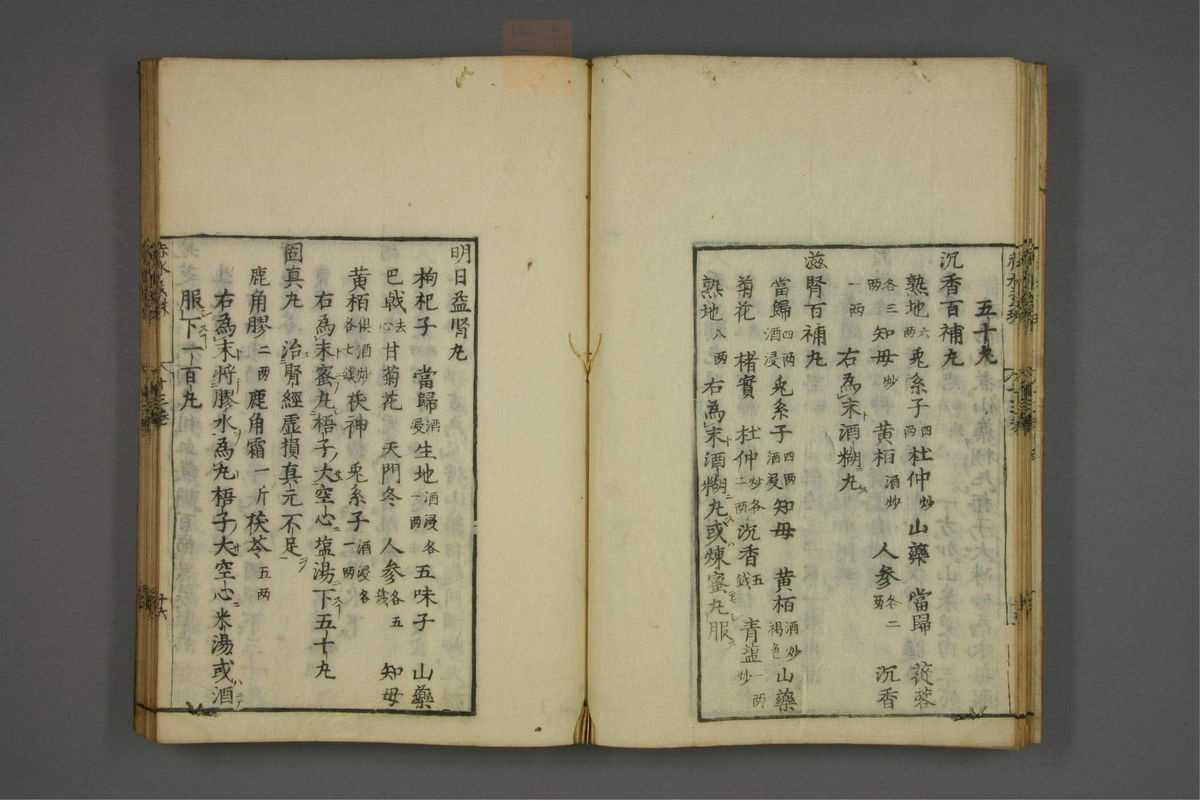 五十丸
沉香百補丸
熟地六两兎糸子四两杜仲炒山藥當歸蓯蓉
各三两知母炒黄栢酒炒人参各二两沉香
一两右為末酒糊丸
滋腎百補丸
當歸四两酒浸兎糸子四两酒浸知母黄栢酒炒褐色山藥
菊花楮實杜仲炒各二两沉香五錢青塩一两炒
熟地八两右為末酒糊丸或煉蜜丸服
明目益腎丸
枸杞子當歸酒浸生地酒浸各一两五味子山藥
巴戟去心甘菊花天門冬人参各五錢知母
黄栢俱酒炒各七錢茯神兎糸子酒浸各一两
右為末蜜丸梧子大空心塩湯下五十丸
固真丸治腎經虚損真元不足
鹿角膠二两鹿角霜一斤茯苓五两
右為末将膠水為丸梧子大空心米湯或酒
服下一百丸
十六